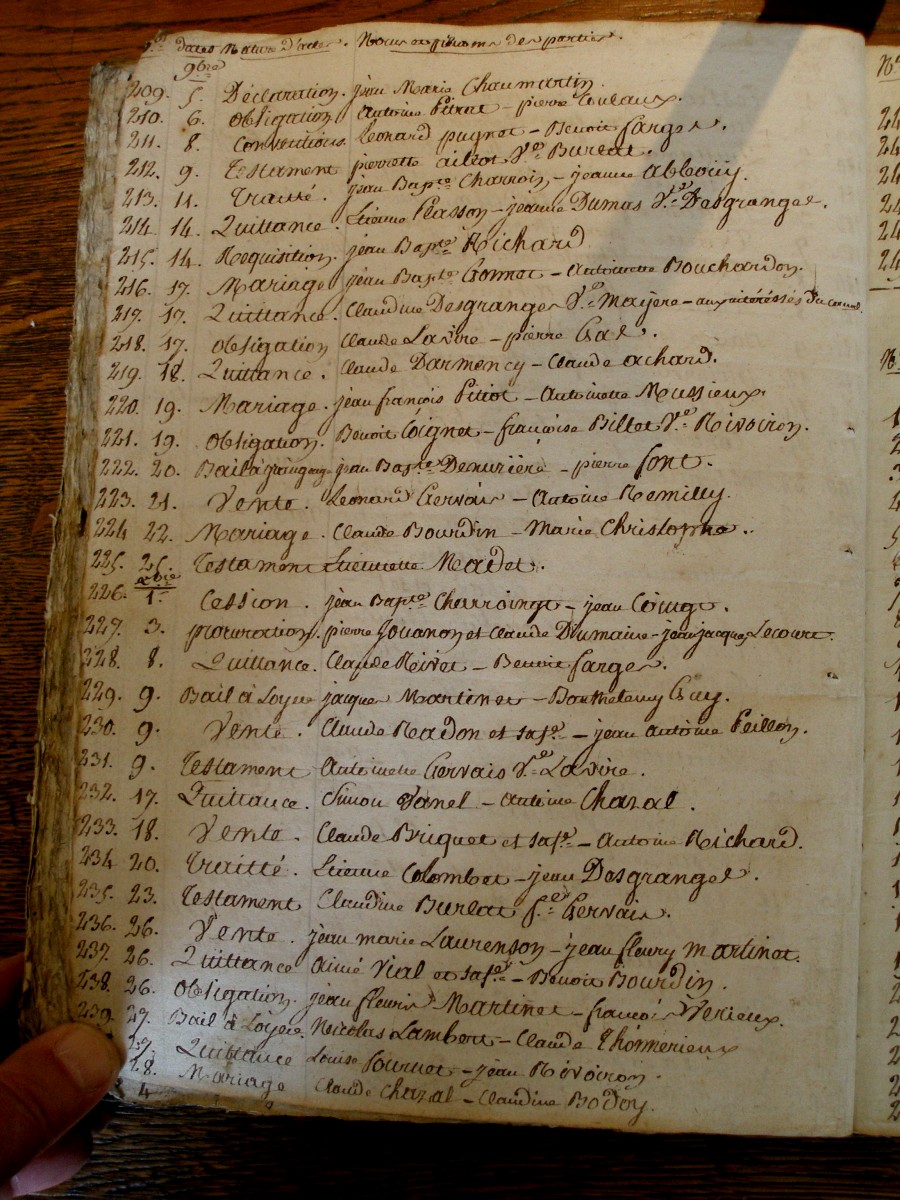 Nos dates Nature D'actes. Noms et prénoms des parties.
9bre
209. 5. Déclaration. jean Marie Chaumartin
210. 6. Obligation Antoine Pitrat - pierre Toulaux.
211. 8. Conventions. Leonard pugnet - Benoit farges.
212. 9. Testament pierrette ailiot Ve Burlat.
213. 11. Traité. jean Bapte Charroin - jeanne Abbouÿ.
214. 14. Quittance. Etienne Plasson - jeanne Dumas Ve Desgranges.
215. 14. Requisition. jean Bapte Richard
216. 17. Mariage jean Bapte Gonnet - Antoinette Bouchardon.
217. 17. Quittance. Claudine Desgranges Ve Mazère - aux
218. 17. Obligation Claude Lavire - pierre Gal.
219. 18. Quittance. Claude Darmency - Claude achard.
220. 19. Mariage. jean françois Pitiot - Antoinette Mussieux.
221. 19. Obligation. Benoit Coignet - françoise Billet Ve Rivoiron.
222. 20. Bail à jean Bapte Denurière - pierre font.
223. 21. Vente. Leonard Gervais - Antoine Remilly.
224 22. Mariage. Claude Bourdin - Marie Christophe.
225. 25. Testament Etiennette Madet.
xbre
226. 1er Cession. jean Bapte Charroingt - jean Coingt.
227. 3. procuration. pierre Jouanon et Claude Dumaine - jean jacques Lecourt.
228. 8. Quittance. Claude Rivet - Benoit farges.
229. 9. Bail à Loyer jacque Martinet - Barthelemy Guy.
230. 9. Vente. Claude Radon et sa fe - jean Antoine Peillon.
231. 9. Testament Antoinette Gervais Ve Lavire.
232. 17. Quittance. Simon Vanel - Antoine Chazal.
233. 18. Vente. Claude Briquet et sa fe - Antoine Richard.
234 20. Traitté. Etienne Colombet - jean Desgranges.
235. 23. Testament Claudine Burlat fe Gervais.
236. 26. Vente. jean marie Laurenson - jean fleury martinet.
237. 26. Quittance Aimé Vial et sa fe - Benoit Bourdin.
238. 26. Obligation. jean fleuri Martinet - francois Verieux.
239. 27. Bail à Loyer. Nicolas Lambert - Claude Thonnerieux
27. Quittance Louise Fournet - jean Rivoiron.
28. Mariage Claude Chazal - Claudine Bodoy.